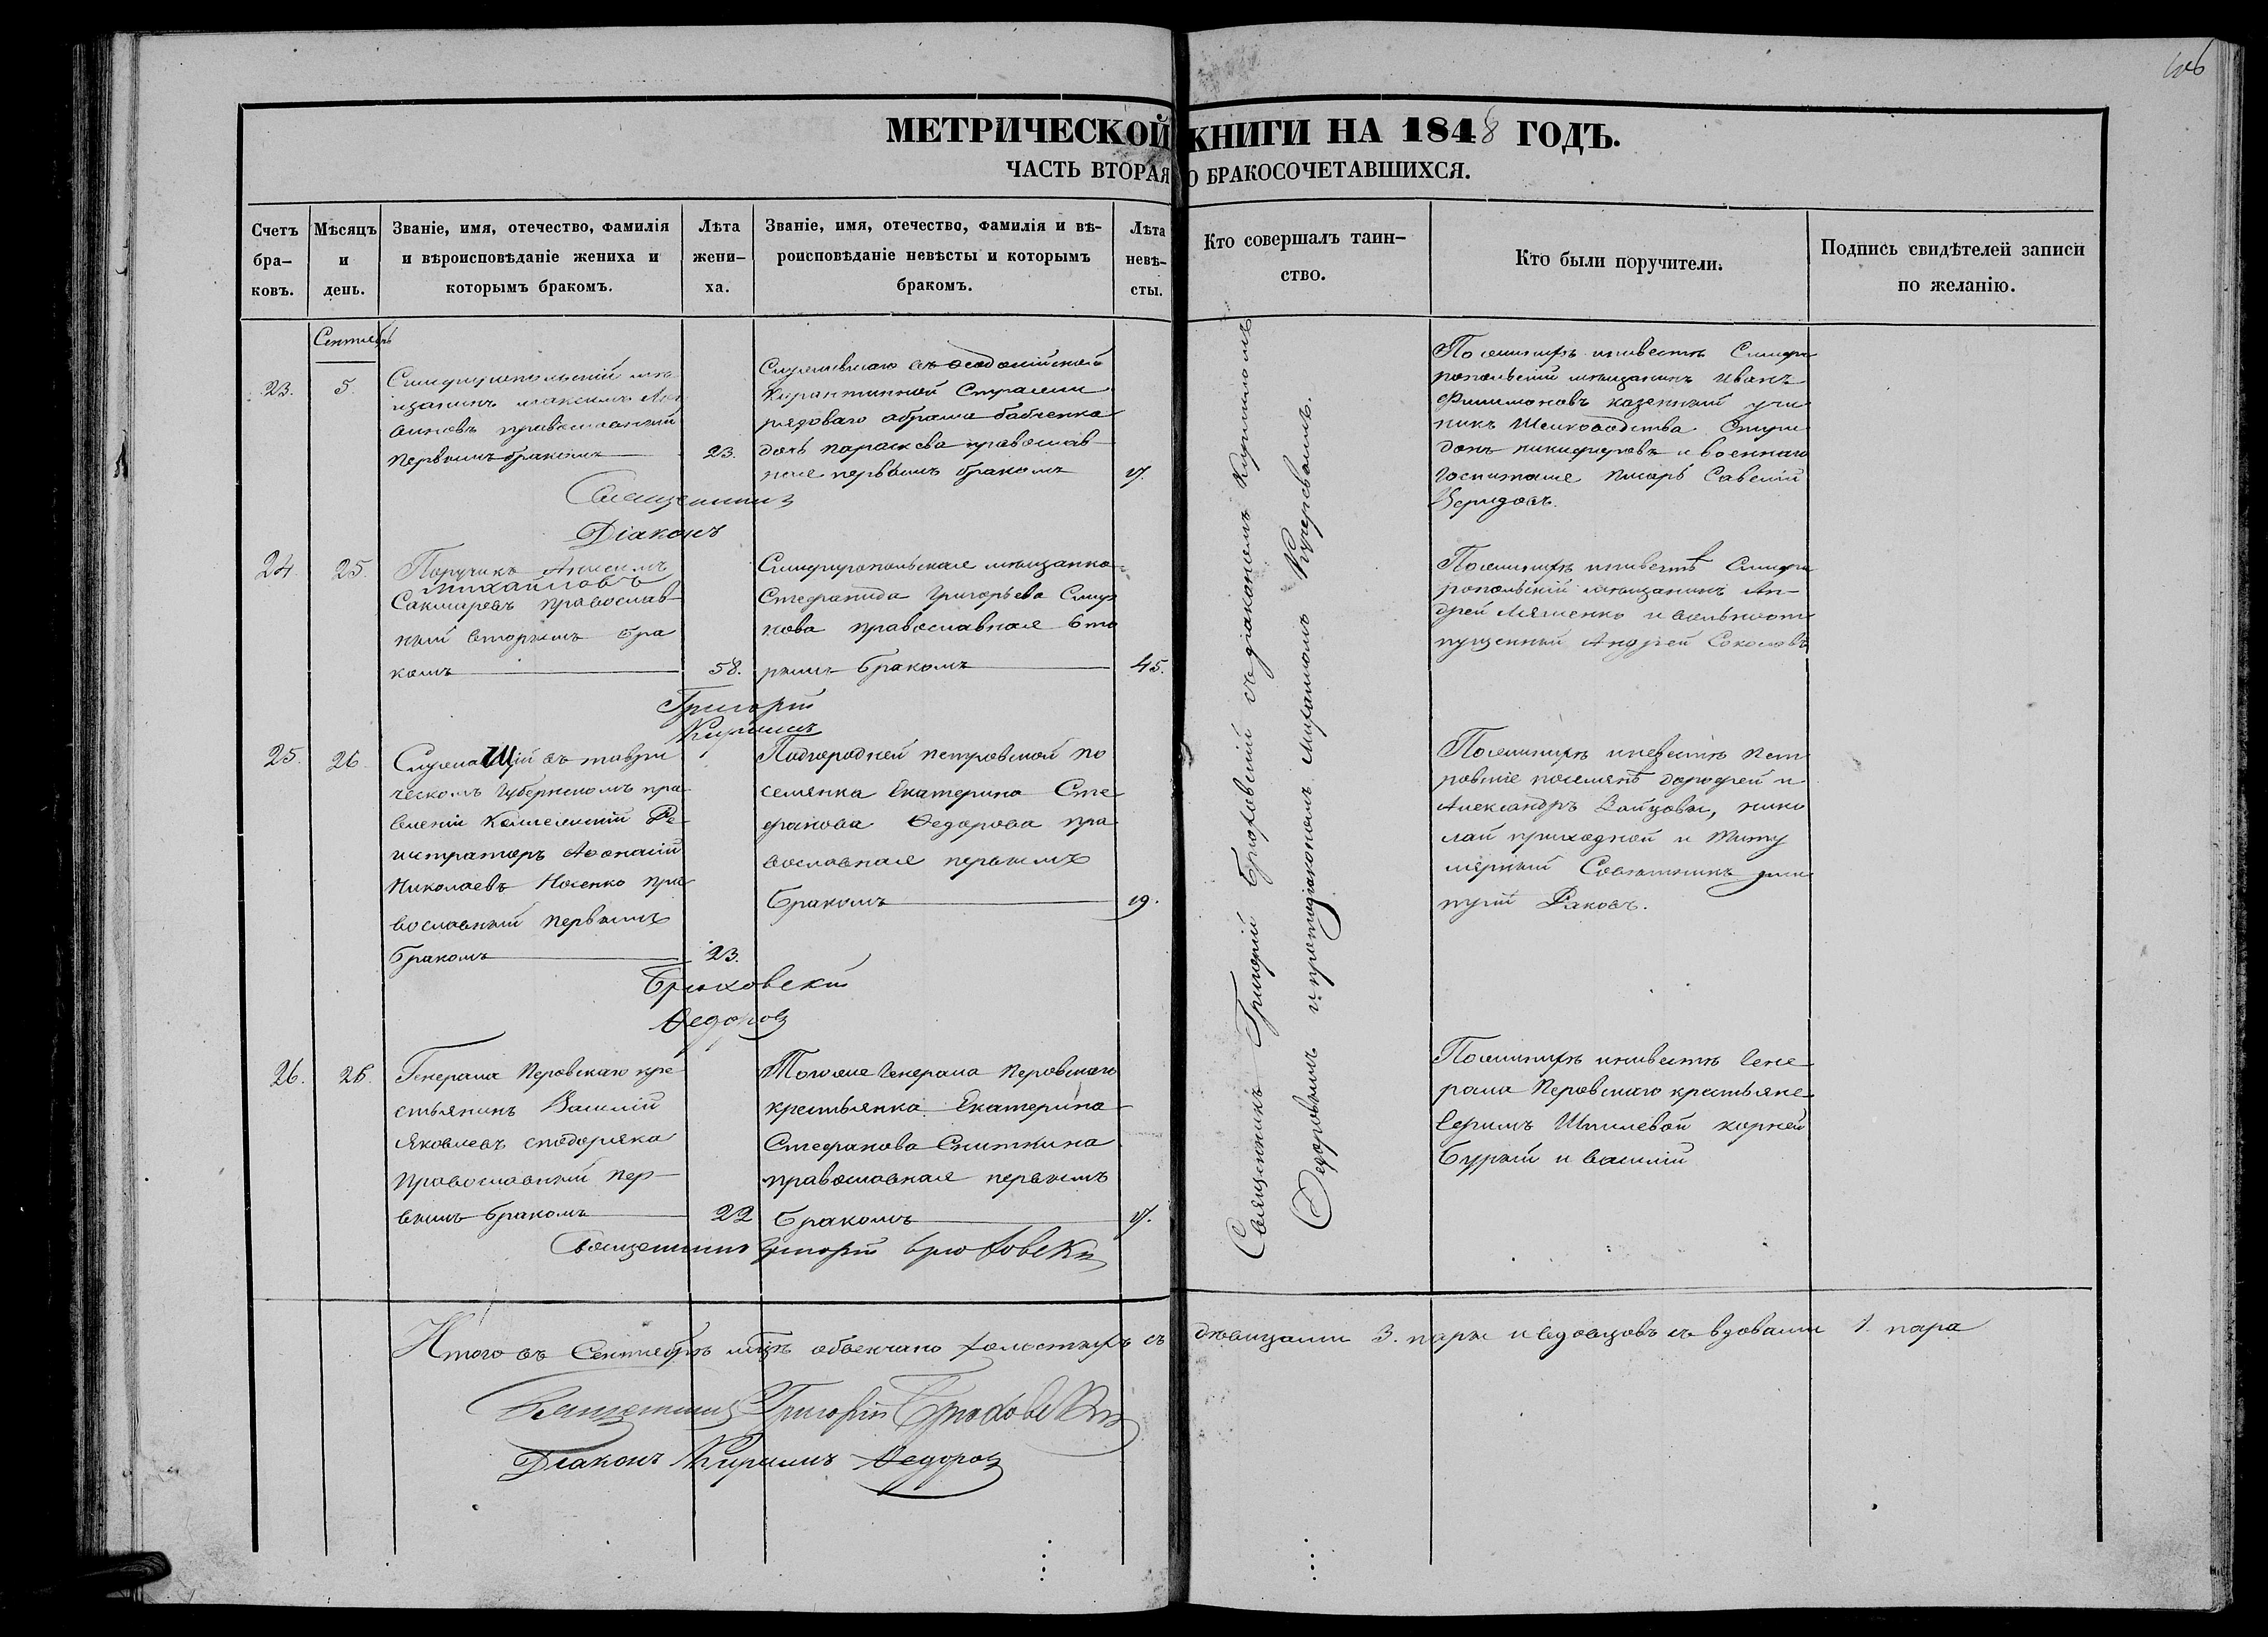 106
МЕТРИЧЕСКОЙ КНИГИ НА 1848 ГОДЪ.
ЧАСТЬ ВТОРАЯ О БРАКОСОЧЕТАВШИХСЯ.
Счетъ
бра-
ковъ.
Мѣсяцъ
и
день.
Званіе, имя, отечество, фамилія
и вѣроисповѣданіе жениха и
которымъ бракомъ.
Лѣта
жени-
ха.
Званіе, имя, отечество, фамилія и вѣ-
роисповѣданіе невѣсты и которымъ
бракомъ.
Лѣта
невѣ-
сты.
Кто совершалъ таин-
ство.
Кто были поручители.
Подпись свидѣтелей записи
по желанію.
Сентябрь
23.
5.
Симферопольскій мѣ
щанинъ Максимъ
православный
первымъ бракомъ
23.
Служившаго въ Ѳеодосійской
Карантинной
рядоваго Абрама Бабченка
дочь Параскева православ
ная первымъ бракомъ
17.
По женихѣ и невѣстѣ Симфе
ропольскій мѣщанинъ Иванъ
Филимоновъ казенный уче
никъ Шелководства Спири
донъ Никифоровъ и военнаго
госпиталя писарь Савелій
Священникъ
Діаконъ
24.
25.
Поручикъ
Михайловъ
Сакмаревъ православ
ный вторымъ бра
комъ
58.
Симферопольская мѣщанка
Стефанида Григорьева
православная вто
рымъ бракомъ
45.
По женихѣ и невѣстѣ Симфе
ропольскій мѣщанинъ Ан-
дрей Ляшенко и вольноот
пущенный Андрей Соколовъ
Григорій
Кириллъ
25.
26.
Служащій въ Таври
ческомъ Губернскомъ пра
вленіи Коллежскій Ре-
гистраторъ Аѳонасій
Николаевъ Носенко пра
вославный первымъ
бракомъ
23.
Подгородней Петровской по
селянка Екатерина Сте
фанова Ѳедорова пра
вославная первымъ
бракомъ
19.
По женихѣ и невѣстѣ Пет
ровскіе поселяне Дорофей и
Александръ Зайцовы, Нико
лай Приходной и Титу
лярный Совѣтникъ
Раковъ.
Брюховскій
Ѳедоровъ
26.
26.
Генерала Перовскаго кре
стьянинъ Василій
Яковлевъ
православный пер-
вымъ бракомъ
22
Тогоже Генерала Перовскаго
крестьянка Екатерина
Стефанова Сниткина
православная первымъ
бракомъ
17.
По женихѣ и невѣстѣ Гене
рала Перовскаго крестьяне
Ефимъ Шпилевой Корней
Бурый и Василій
Священникъ Григорій Брюховскій
Священникъ Григорій Брюховскій съ діакономъ Кирилломъ
Ѳедоровымъ и протодіакономъ Михаиломъ Кучеревымъ.
Итого въ Сентябрѣ мцѣ обвенчано холостыхъ съ дѣвицами 3. пары и вдовцовъ съ вдовами 1. пара
Священникъ Григорій Брюховскій
Діаконъ Кириллъ Ѳедоровъ